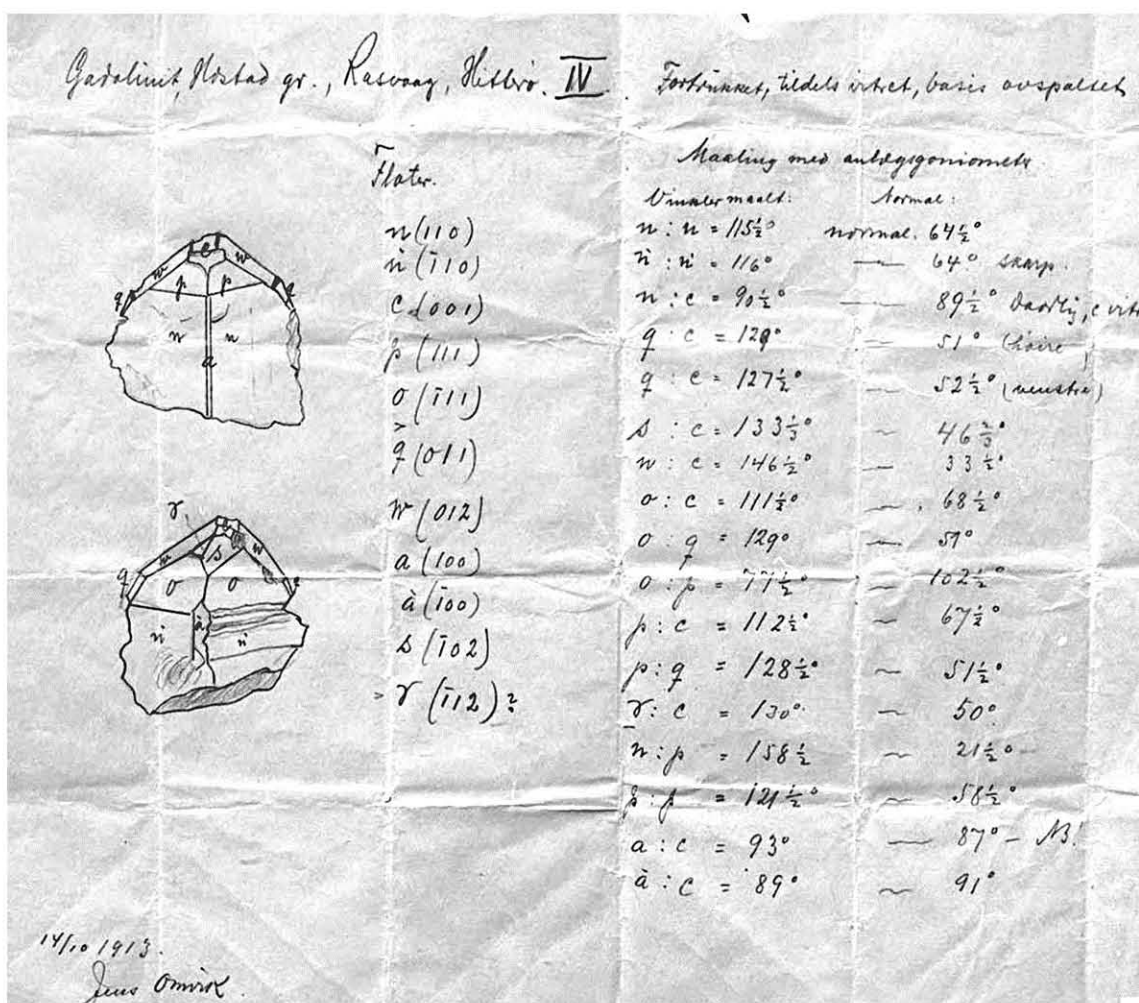 Gadolinit, Hostad gr., Rasvaag, Hitterö. IV. Fortrukket, tildels vitret, basis avspaltet
Flater.
n (110)
ṅ (ī10)
c (001)
p (111)
o (ī11)
q (011)
w (012)
a (100)
à (ī00)
s (ī02)
r (ī12)?
Maaling med anlægsgoniometer.
Vinkler maalt: Normal:
n : n = 115½° normal. 64½°
ṅ : ṅ = 116° — 64° skarp.
n : c = 90½° — 89½° daarlig, c vitr
q : c = 129° ~ 51° (høire)
q : c = 127½° ~ 52½° (venstre)
s : c = 133⅓° ~ 46⅔°
w : c = 146½° — 33½°
o : c = 111½° ~ 68½°
o : q = 129° ~ 51°
o : p = 77½° ~ 102½°
p : c = 112½° ~ 67½°
p : q = 128½° ~ 51½°
r : c = 130° ~ 50°
n : p = 158½ ~ 21½°
p : p = 121½° ~ 58½°
a : c = 93° — 87° – NB!
à : c = 89° ~ 91°
c
w
w
p
p
q
q
n
n
a
r
w
w
s
q
o
o
ṅ
à
ṅ
14/10 1913.
Jens Omvik.